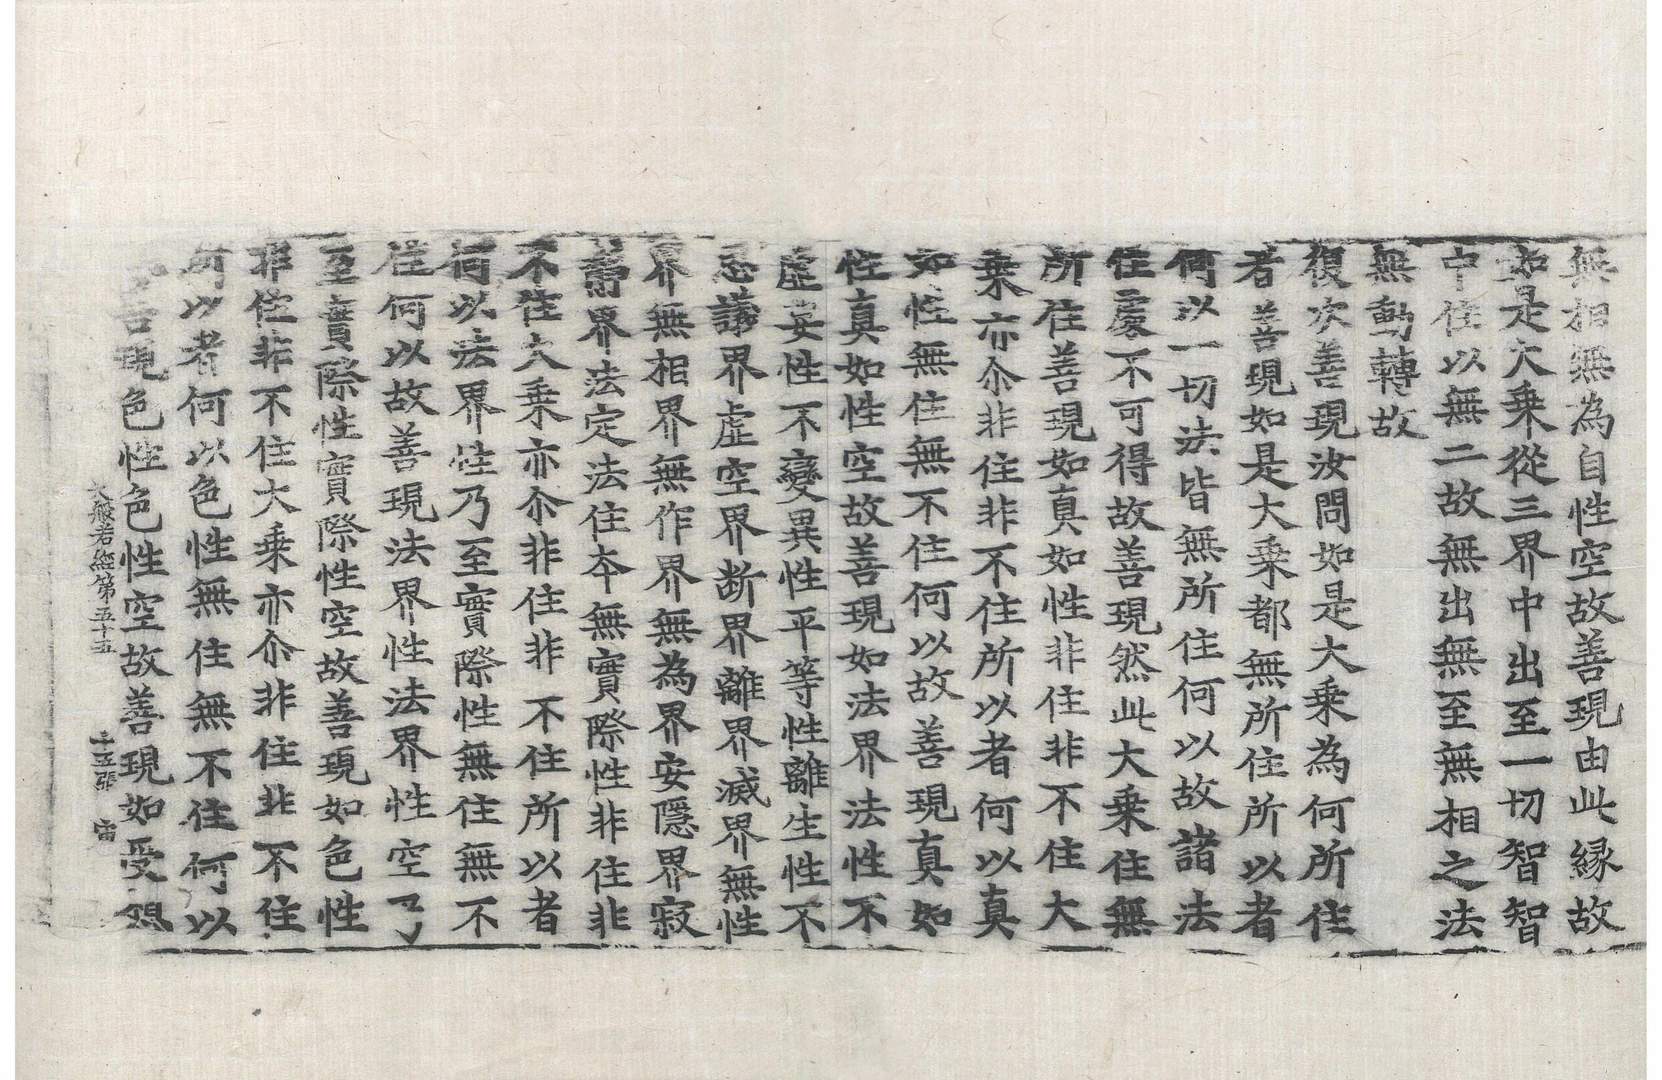 無相無為自性空故善現由此縁故
如是大乘從三界中出至一切智智
中住以無二故無出無至無相之法
無動轉故
復次善現汝問如是大乘為何所住
者善現如是大乘都無所住所以者
何以一切法皆無所住何以故諸法
住處不可得故善現然此大乘住無
所住善現如真如性非住非不住大
乘亦尒非住非不住所以者何以真
如性無住無不住何以故善現真如
性真如性空故善現如法界法性不
虛妄性不變異性平等性離生性不
思議界虛空界断界離界滅界無性
界無相界無作界無為界安隱界寂
靜界法定法住本無實際性非住非
不住大乘亦尒非住非不住所以者
何以法界性乃至實際性無住無不
住何以故善現法界性法界性空乃
至實際性實際性空故善現如色性
非住非不住大乘亦尒非住非不住
所以者何以色性無住無不住何以
故善現色性色性空故善現如受想
大般若經第五十五 十五張 宙